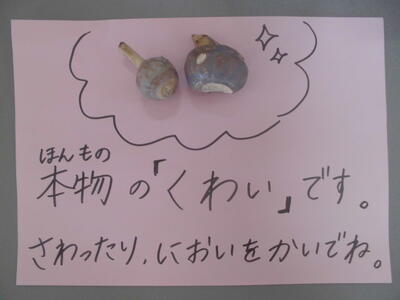 ほんもの
本物の「くわい」です。
さわったり、においをかいでね。